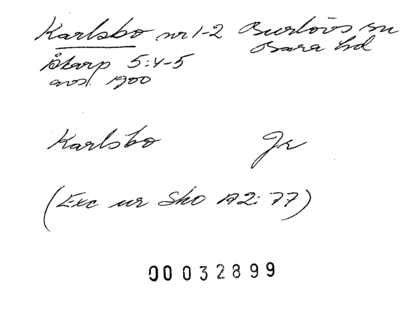 Karlsbo nr 1-2 Burlövs sn
Bara hd
Åkarp 5:4-5
avs. 1900
Karlsbo Je
(Exc ur Sko A2:77)
00032899